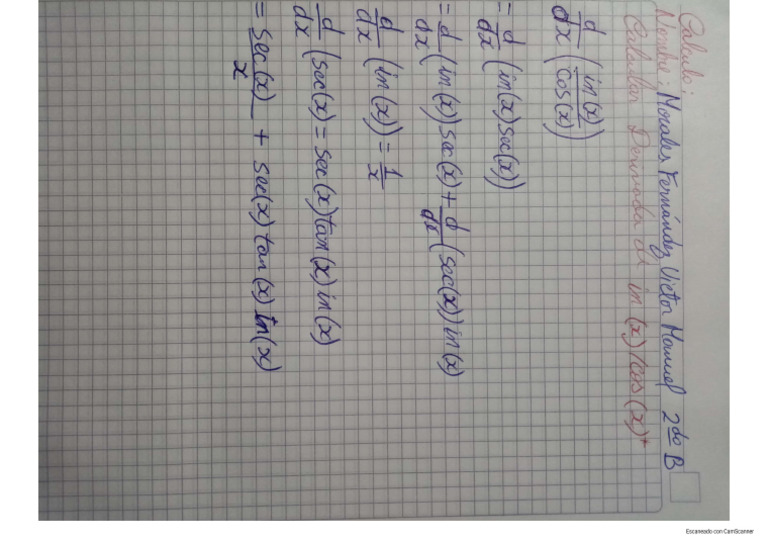 Calculo:
Nombre: Morales Fernández Victor Manuel 2do B
Calcular Derivada de in (x)/cos(x)*
d/dx (in(x)/cos(x))
= d/dx (in(x)sec(x))
= d/dx (in(x))sec(x) + d/dx (sec(x))in(x)
d/dx (in(x)) = 1/x
d/dx (sec(x) = sec(x)tan(x)in(x)
= sec(x)/x + sec(x)tan(x)in(x)
Escaneado con CamScanner